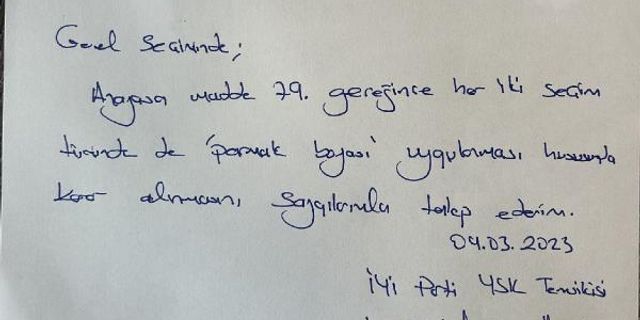 Genel Seçiminde;
Anayasa madde 79. gereğince her iki seçim
türünde de 'parmak boyası' uygulaması hususunda
karar alınmasını, saygılarımla talep ederim.
04.03.2023
İYİ Parti YSK Temsilcisi